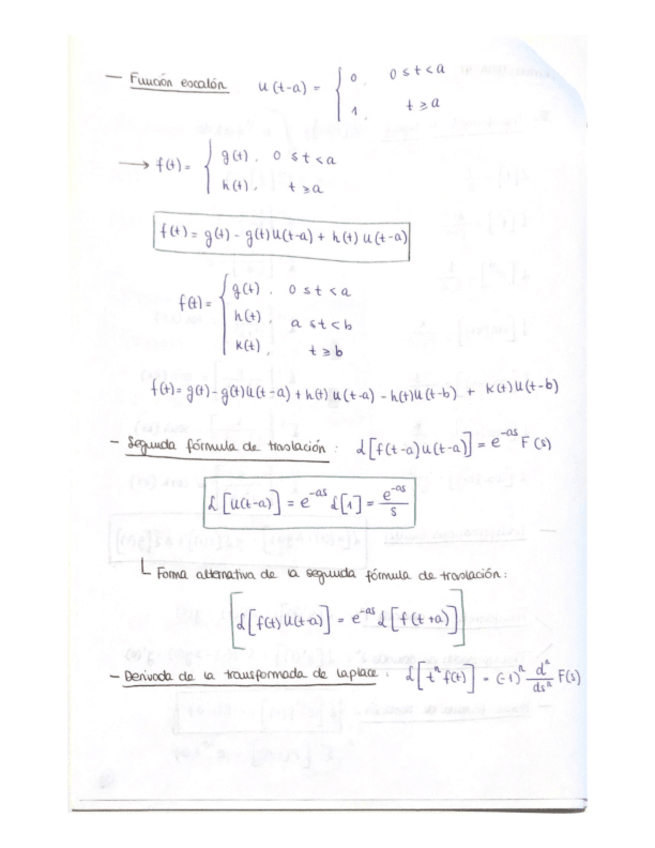 — Función escalón u(t-a) = { 0, 0 ≤ t < a
1, t ≥ a
→ f(t) = { g(t), 0 ≤ t < a
h(t), t ≥ a
f(t) = g(t) - g(t)u(t-a) + h(t)u(t-a)
f(t) = { g(t), 0 ≤ t < a
h(t), a ≤ t < b
k(t), t ≥ b
f(t) = g(t) - g(t)u(t-a) + h(t)u(t-a) - h(t)u(t-b) + k(t)u(t-b)
- Segunda fórmula de traslación: ℒ[f(t-a)u(t-a)] = e^-as F(s)
ℒ[u(t-a)] = e^-as ℒ[1] = e^-as / s
Forma alternativa de la segunda fórmula de traslación:
ℒ[f(t)u(t-a)] = e^-as ℒ[f(t+a)]
- Derivada de la transformada de laplace: ℒ[t^n f(t)] = (-1)^n d^n/ds^n F(s)